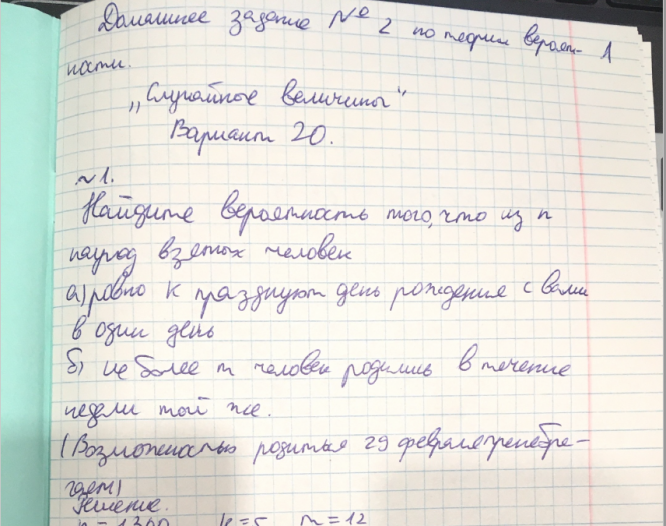 Домашнее задание № 2 по теории вероят- 1
ности.
„Случайные величины"
Вариант 20.
~1.
Найдите вероятность того, что из n
наугад взятых человек
а) ровно k празднуют день рождения с вами
в один день
б) не более m человек родились в течение
недели той же.
(Возможностью родиться 29 февраля пренебре-
гаем)
Решение.
n = 1300 k = 5 m = 12